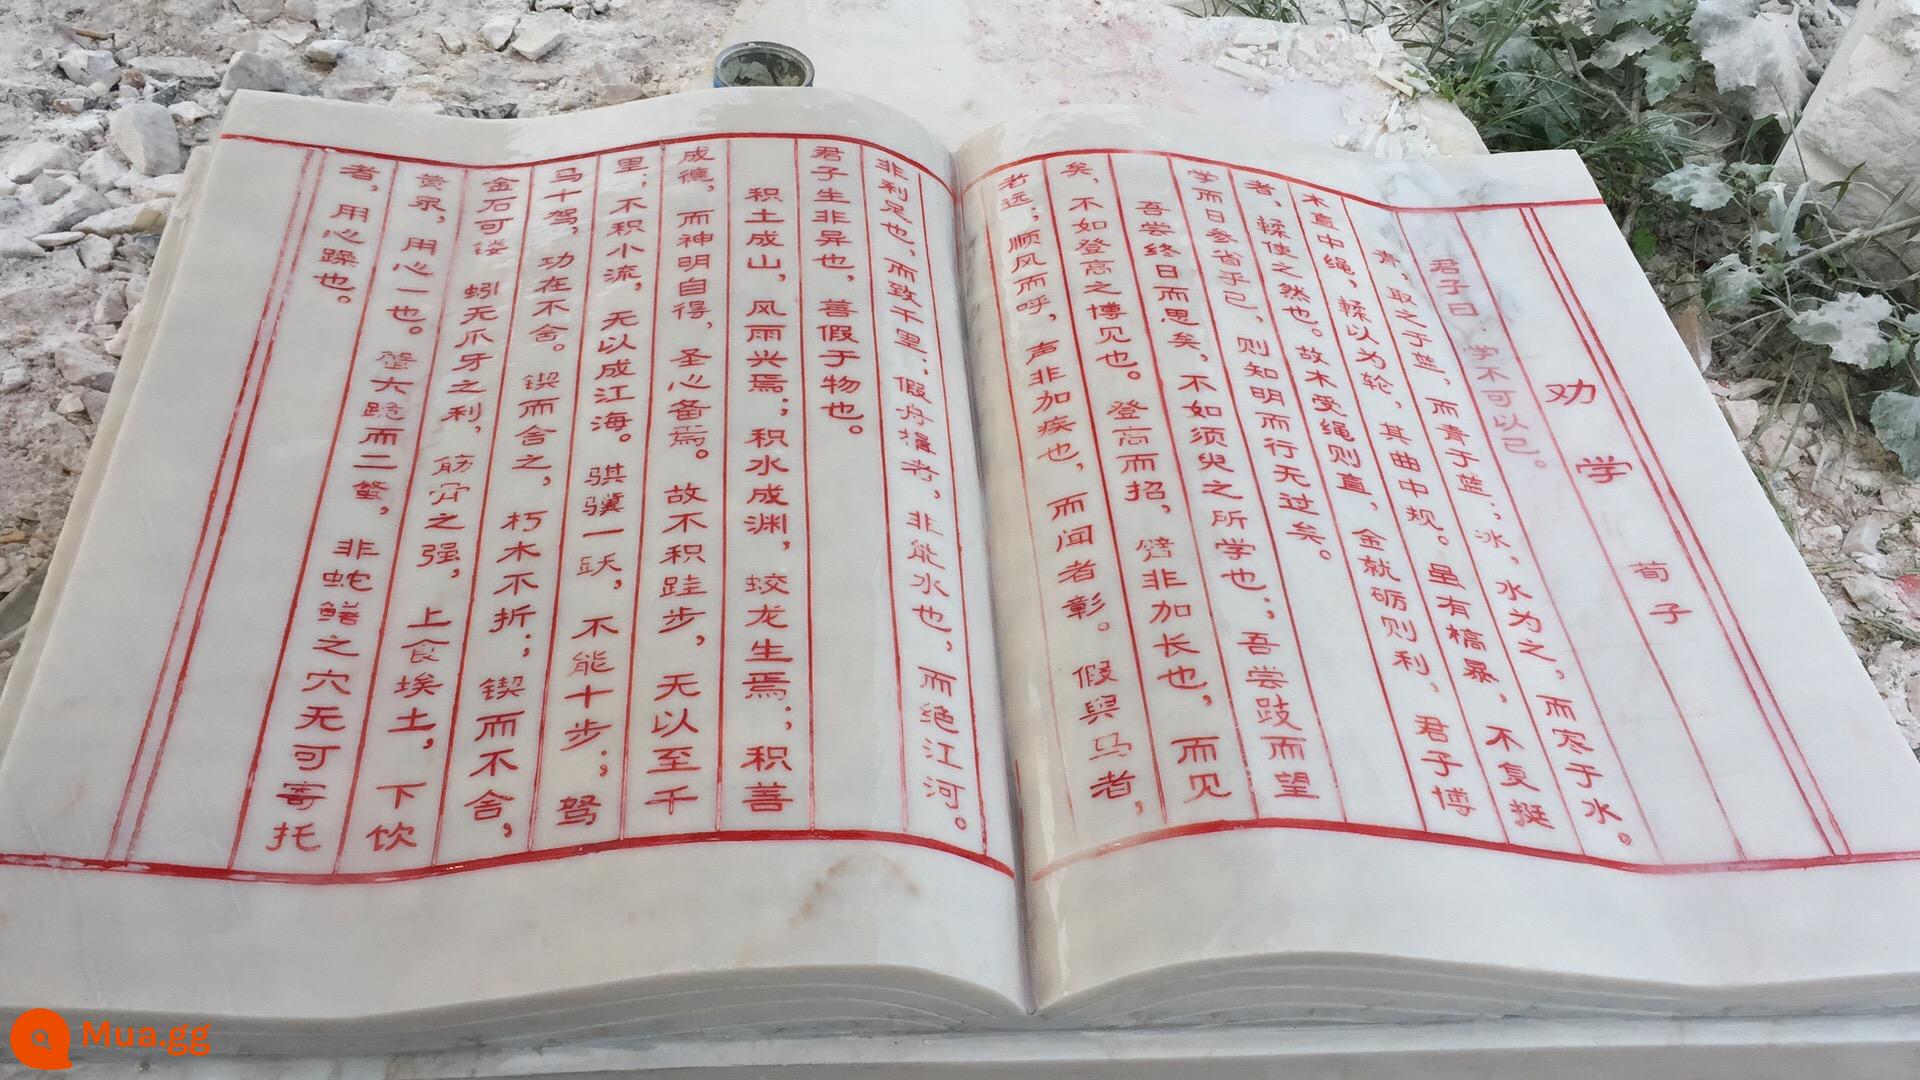 劝学
荀子
君子曰：学不可以已。
青，取之于蓝，而青于蓝；冰，水为之，而寒于水。
木直中绳，輮以为轮，其曲中规。虽有槁暴，不复挺
者，輮使之然也。故木受绳则直，金就砺则利，君子博
学而日参省乎己，则知明而行无过矣。
吾尝终日而思矣，不如须臾之所学也；吾尝跂而望
矣，不如登高之博见也。登高而招，臂非加长也，而见
者远；顺风而呼，声非加疾也，而闻者彰。假舆马者，
非利足也，而致千里；假舟楫者，非能水也，而绝江河。
君子生非异也，善假于物也。
积土成山，风雨兴焉；积水成渊，蛟龙生焉；积善
成德，而神明自得，圣心备焉。故不积跬步，无以至千
里；不积小流，无以成江海。骐骥一跃，不能十步；驽
马十驾，功在不舍。锲而舍之，朽木不折；锲而不舍，
金石可镂 蚓无爪牙之利，筋骨之强，上食埃土，下饮
黄泉，用心一也。蟹六跪而二螯，非蛇鳝之穴无可寄托
者，用心躁也。
Mua.gg